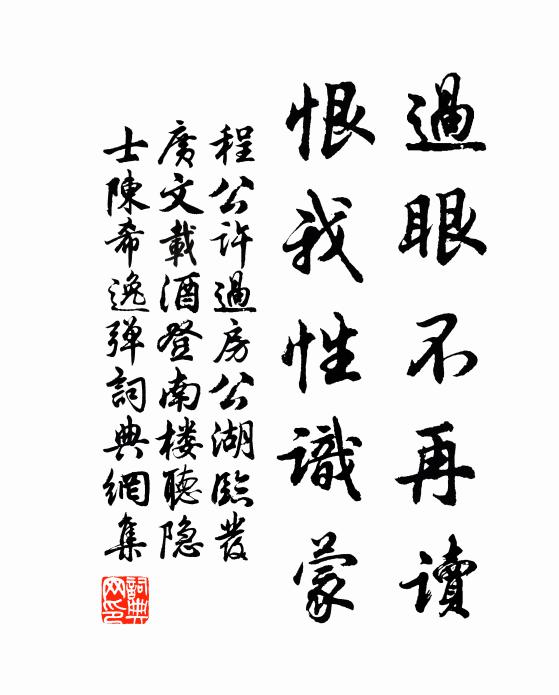 過眼不再讀
恨我性識蒙
程公許過房公湖臨發
廣文載酒登南楼聽隐
士陳希逸弹詞典網集
詞典網印